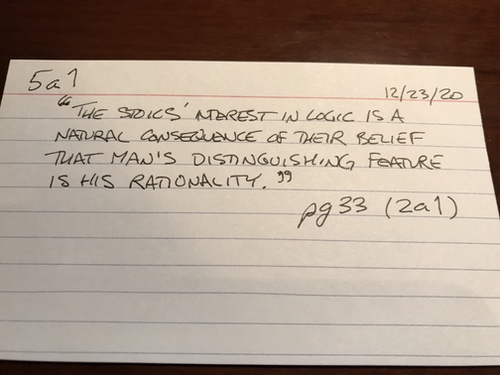 5a1
12/23/20
"THE STOICS' NTEREST IN LOGIC IS A
NATURAL CONSEQUENCE OF THEIR BELIEF
THAT MAN'S DISTINGUISHING FEATURE
IS HIS RATIONALITY."
pg33 (2a1)